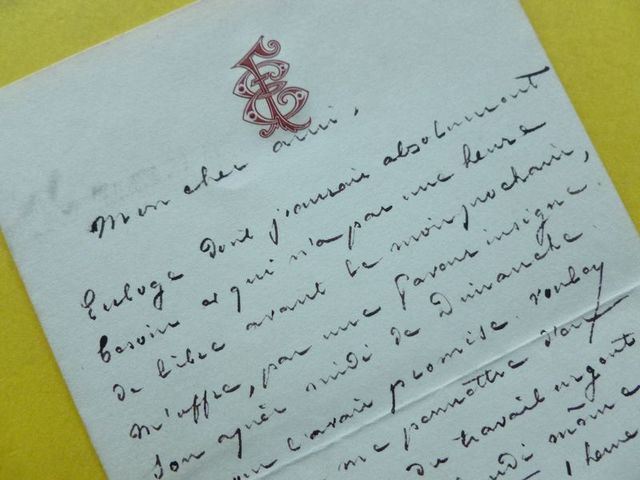 Mon cher ami,
dont j'aurais absolument
besoin et qui n'a pas une heure
de libre avant le mois prochain,
m'offre, par une faveur insigne,
son après midi de Dimanche.
l'avais promise. voulez
me permettre d'en
du travail urgent
même
heure